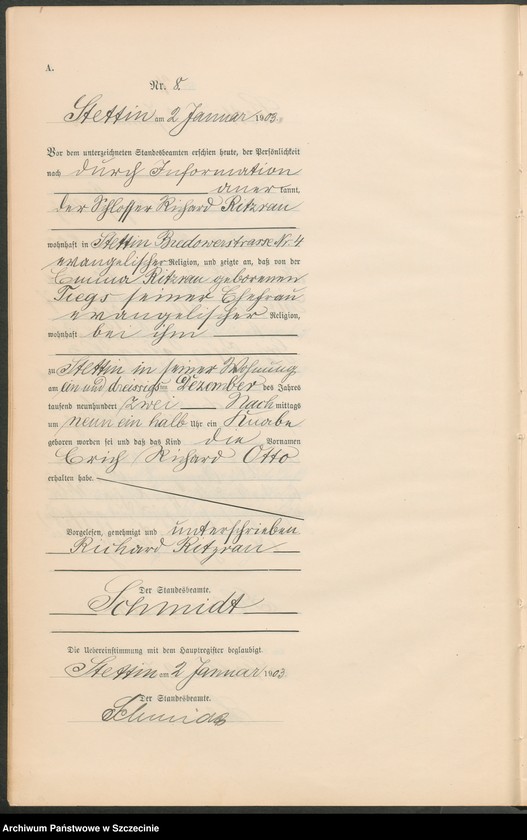 A.
Nr. 8
Stettin am 2 Januar 1903.
Vor dem unterzeichneten Standesbeamten erschien heute, der Persönlichkeit
nach durch Information
anerkannt,
der Schlosser Richard Ritzrau
wohnhaft in Stettin Bredowerstrasse Nr. 4
evangelischer Religion, und zeigte an, daß von der
Emma Ritzrau geborenen
Tiegs seiner Ehefrau
evangelischer Religion,
wohnhaft bei ihm
zu Stettin in seiner Wohnung
am ein und dreissigs= Dezember des Jahres
tausend neunhundert zwei Nachmittags
um neun ein halb Uhr ein Knabe
geboren worden sei und daß das Kind die Vornamen
Erich Richard Otto
erhalten habe.
Vorgelesen, genehmigt und unterschrieben
Richard Ritzrau
Der Standesbeamte.
Schmidt
Die Uebereinstimmung mit dem Hauptregister beglaubigt.
Stettin am 2 Januar 1903.
Der Standesbeamte.
Schmidt
Archiwum Państwowe w Szczecinie